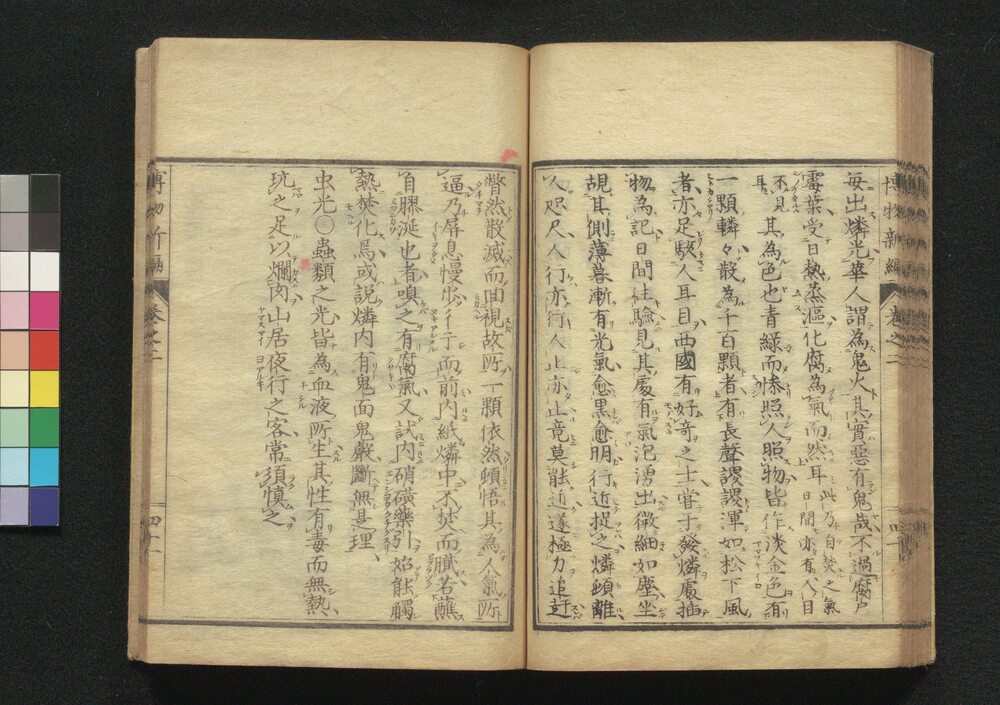 博物新編 卷之二
毎出燐光華人謂爲鬼火其實惡有鬼哉不過腐尸
霉葉受日熱蒸漚化腐爲氣而然耳此乃自焚之氣日間亦有人目
不見耳其爲色也青綠而㴞照人照物皆作淡金色有
一顆轔々散爲千百顆者有長聲謖謖渾如松下風
者亦足駭人耳目西國有好奇之士嘗于發燐處插
物爲記日間往驗見其處有氣泡湧出微細如塵坐
覘其側薄暮漸有光氣愈黑愈明行近捉之燐頓離
人咫尺人行亦行人止亦止竟莫能近遂極力追赶
瞥然散滅而囬視故所一顆依然頓悟其爲人氣所
逼乃屏息慢步彳亍而前內紙燐中不焚而膩若蘸
自膠涎也者嗅之有腐氣又試內硝磺藥引始能觸
熱焚化焉或說燐內有鬼面鬼聲斷無是理
虫光〇蟲類之光皆爲血液所生其性有毒而無熱
玩之足以爛肉山居夜行之客常須慎之
博物新編 卷之二
四十二